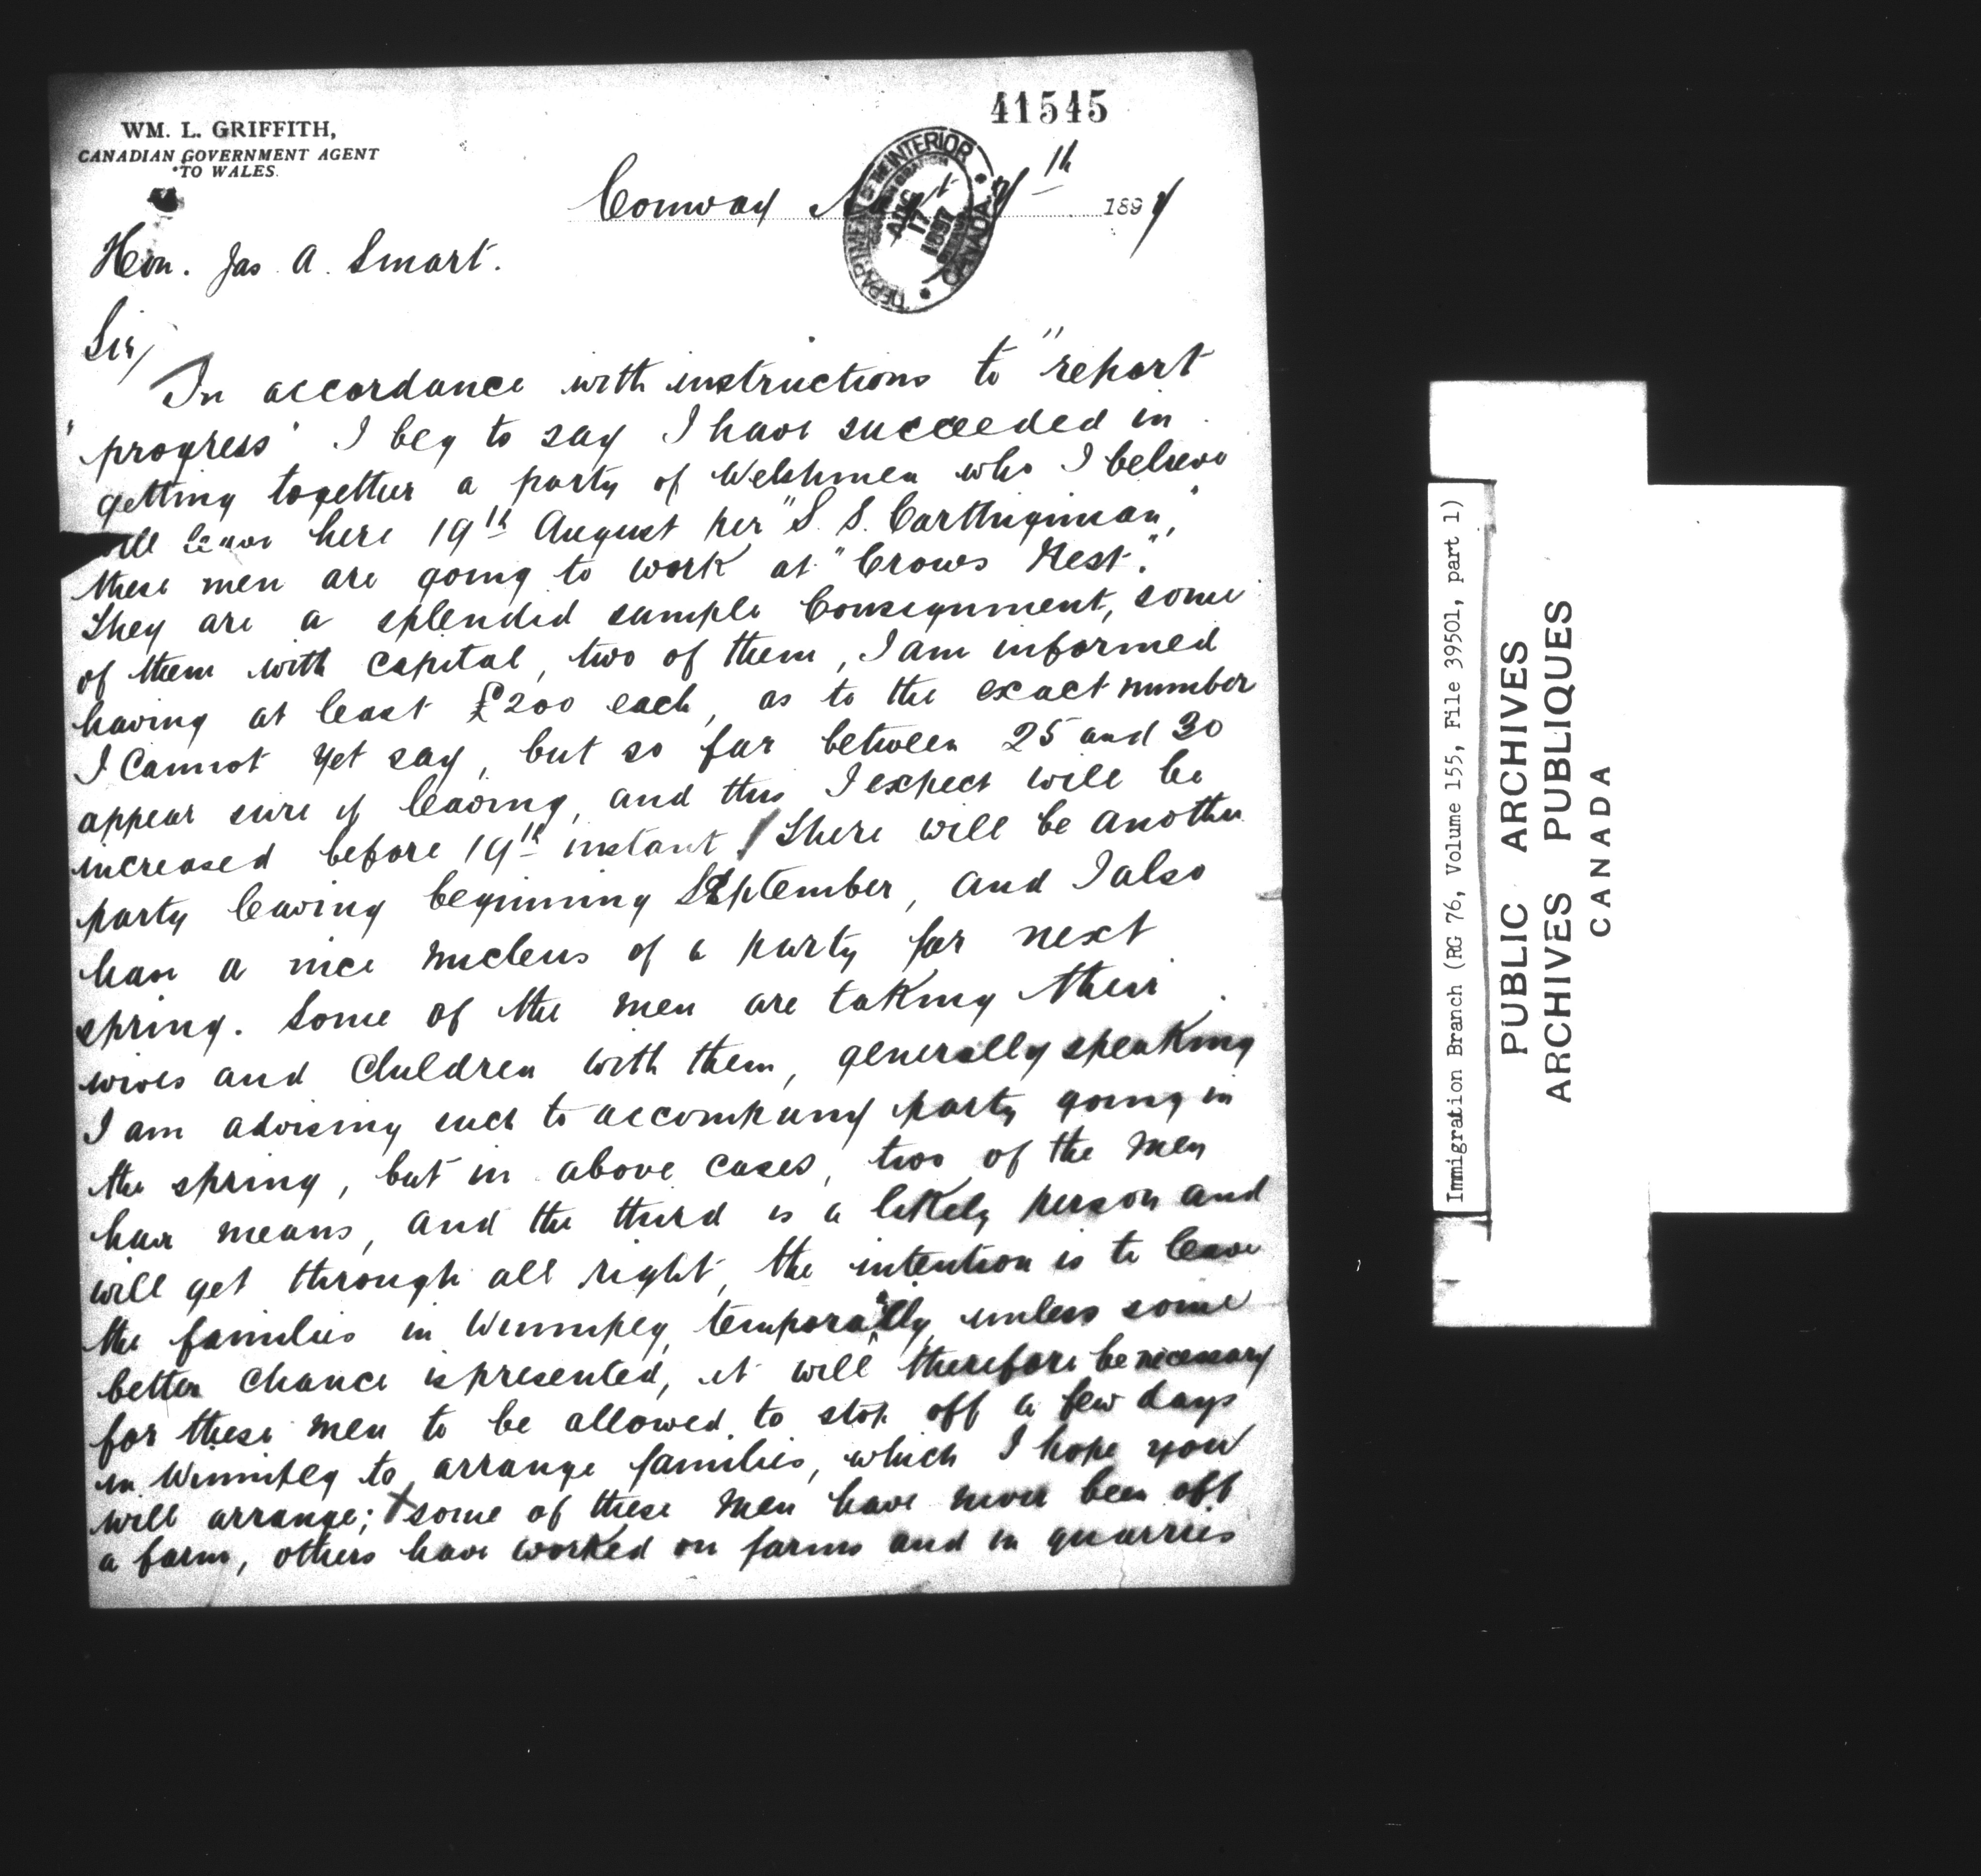 41545
WM. L. GRIFFITH,
CANADIAN GOVERNMENT AGENT
TO WALES.
Conway 7th 1897
DEPARTMENT OF THE INTERIOR
AUG 17 1897
CANADA
Hon. Jas A. Smart.
Sir/
In accordance with instructions to "report
"progress" I beg to say I have succeeded in
getting together a party of Welshmen who I believe
will leave here 19th August per "S. S. Carthiginian,"
these men are going to work at "Crows Nest."
They are a splendid sample Consignment, some
of them with capital, two of them, I am informed
having at least £200 each, as to the exact number
I cannot yet say, but so far between 25 and 30
appear sure of leaving, and this I expect will be
increased before 19th instant / There will be another
party leaving beginning September, and I also
have a nice nucleus of a party for next
spring. Some of the men are taking their
wives and children with them, generally speaking
I am advising such to accompany party going in
the spring, but in above cases, two of the men
have means, and the third is a likely person and
will get through all right, the intention is to leave
the families in Winnipeg, temporarily, unless some
better chance is presented, it will therefore be necessary
for these men to be allowed to stop off a few days
in Winnipeg to arrange families, which I hope you
will arrange; X some of these men have never been off
a farm, others have worked on farms and in quarries
Immigration Branch (RG 76, Volume 155, File 39501, part 1)
PUBLIC ARCHIVES
ARCHIVES PUBLIQUES
CANADA